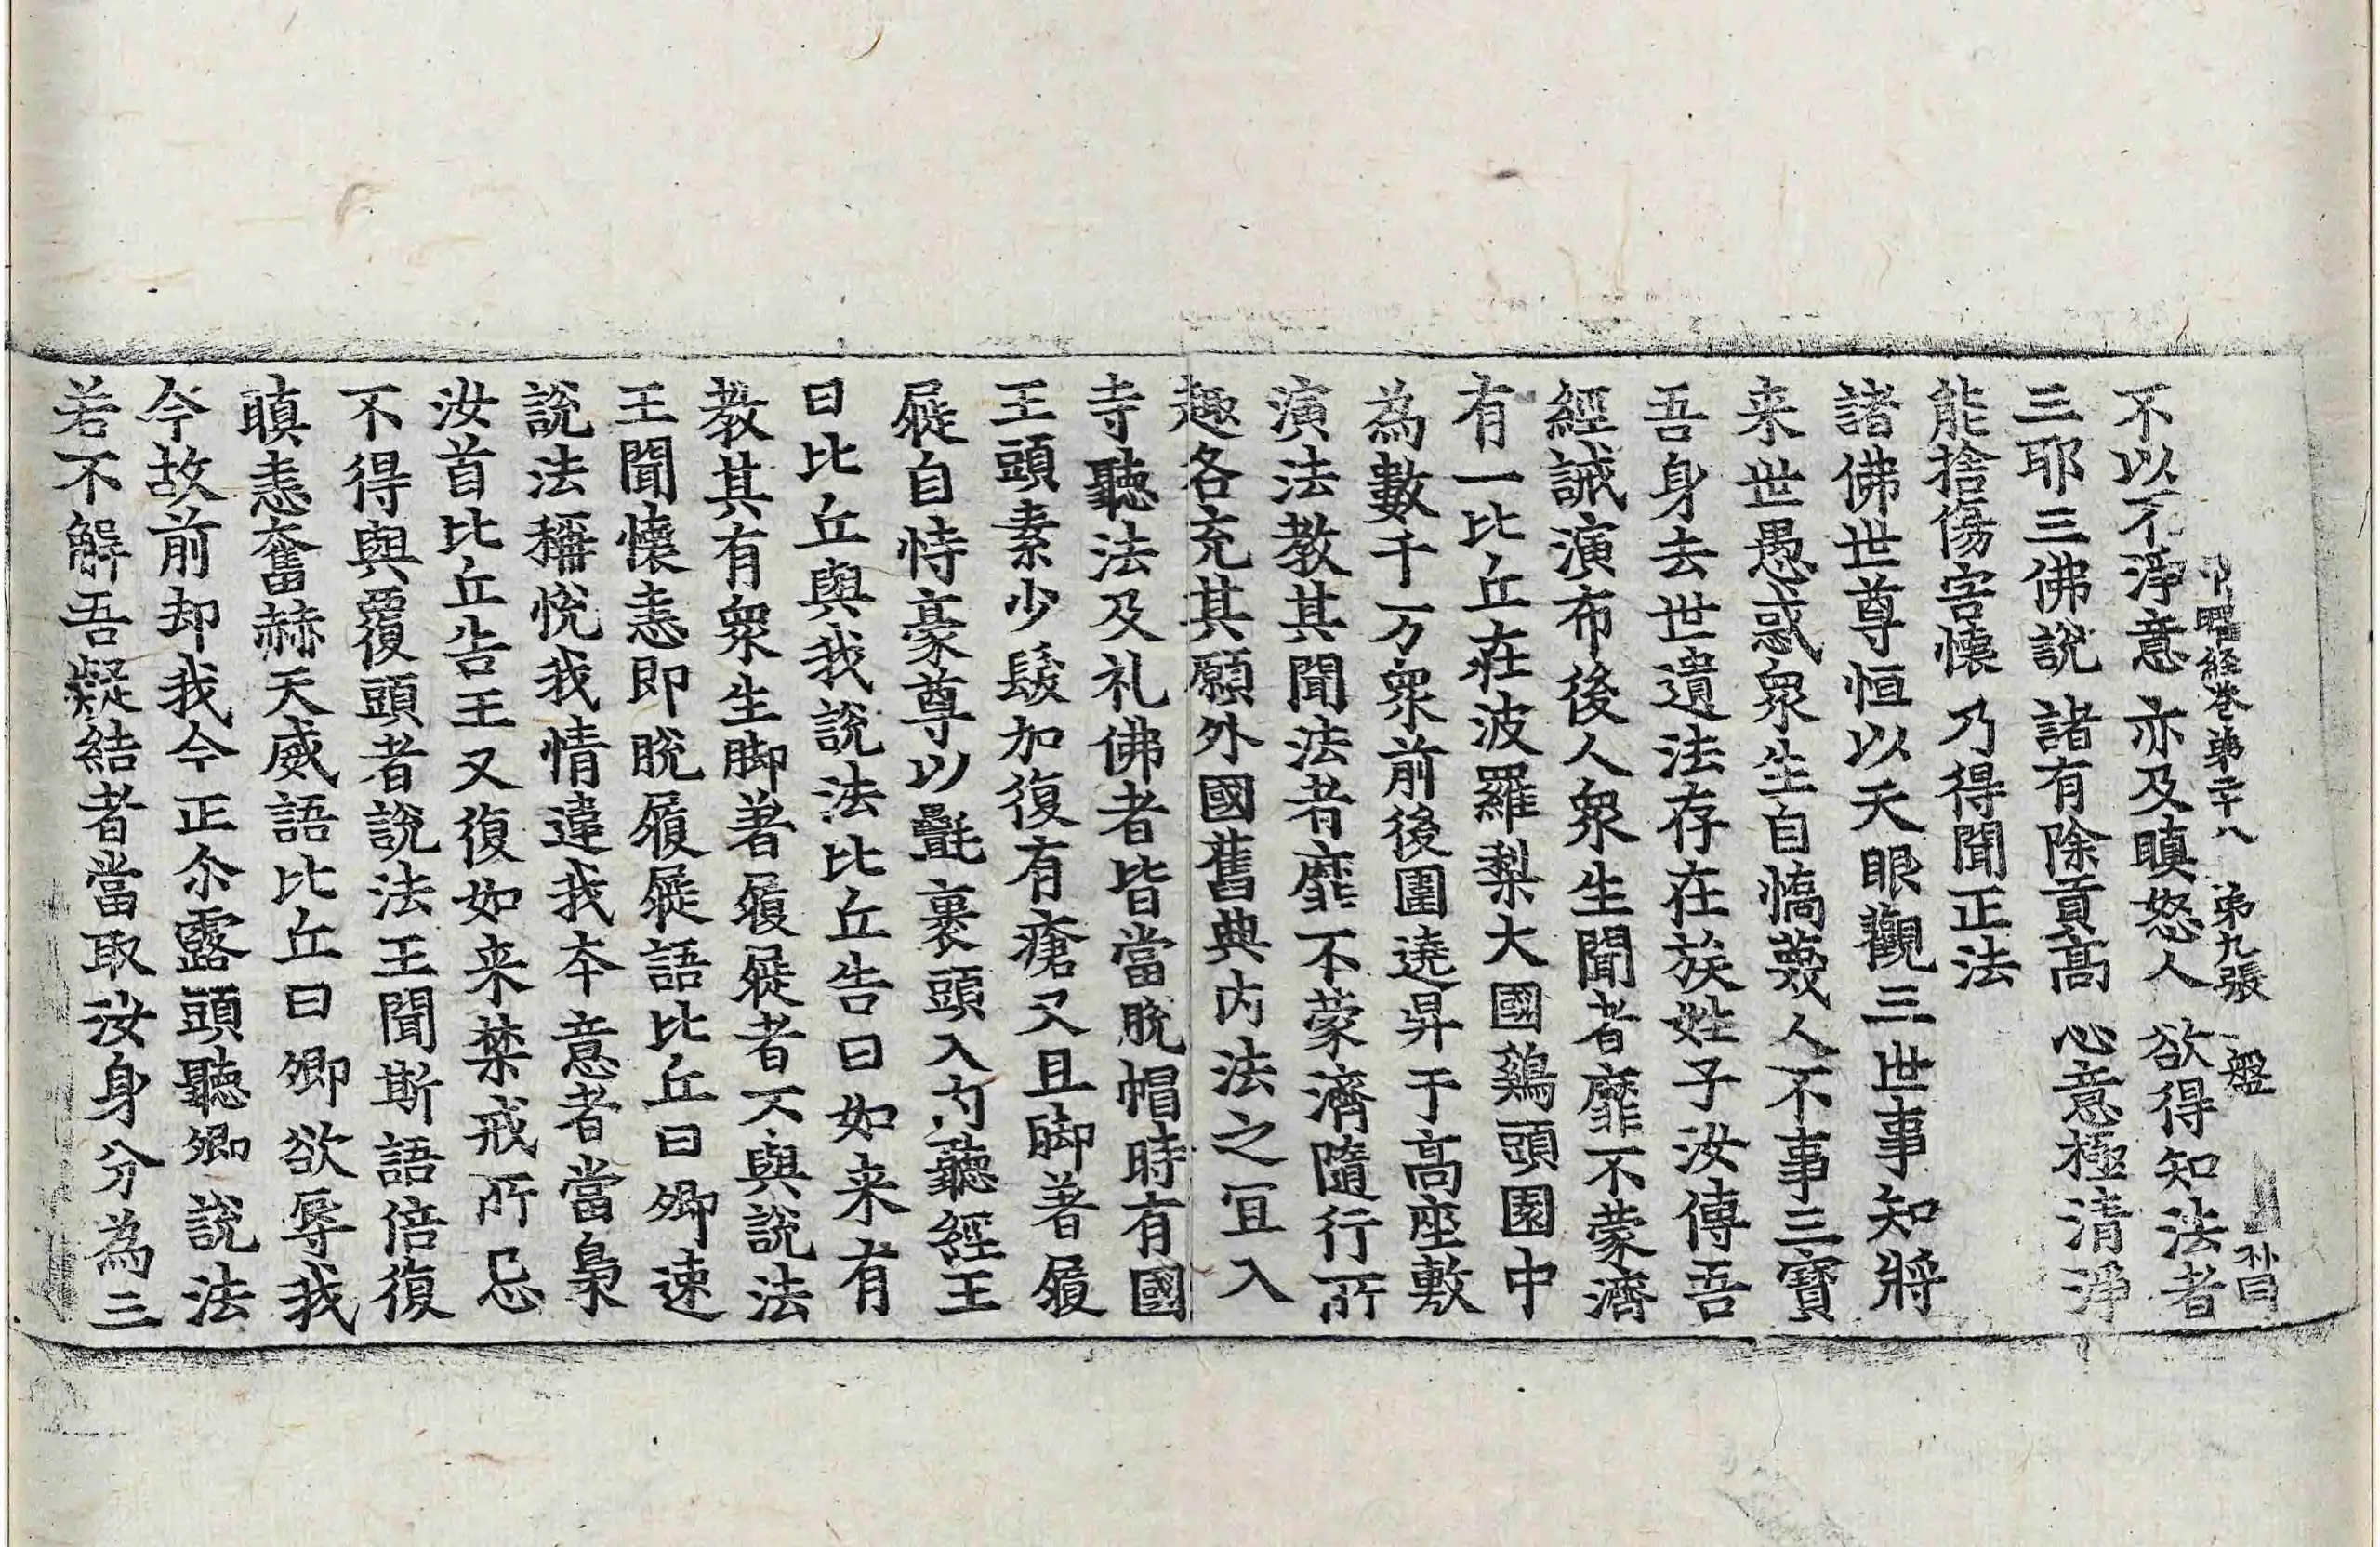 出曜經卷第二十八 第九張 盤
不以不淨意 亦及瞋怒人 欲得知法者
三耶三佛說 諸有除貢高 心意極清淨
能捨傷害懷 乃得聞正法
諸佛世尊恒以天眼觀三世事知將
来世愚惑衆生自憍蔑人不事三寶
吾身去世遺法存在族姓子汝傳吾
經誡演布後人衆生聞者靡不蒙濟
有一比丘在波羅梨大國鷄頭園中
為數千万衆前後圍遶昇于高座敷
演法教其聞法者靡不蒙濟隨行所
趣各充其願外國舊典内法之冝入
寺聽法及礼佛者皆當脫帽時有國
王頭素少髮加復有瘡又且脚著履
屣自恃豪尊以㲲裹頭入内聽經王
曰比丘與我說法比丘告曰如来有
教其有衆生脚著履屣者不與說法
王聞懷恚即脫履屣語比丘曰卿速
說法稱悅我情違我本意者當梟
汝首比丘告王又復如来禁戒所忌
不得與覆頭者說法王聞斯語倍復
瞋恚奮赫天威語比丘曰卿欲辱我
今故前却我今正尒露頭聽卿說法
若不解吾疑結者當取汝身分為三